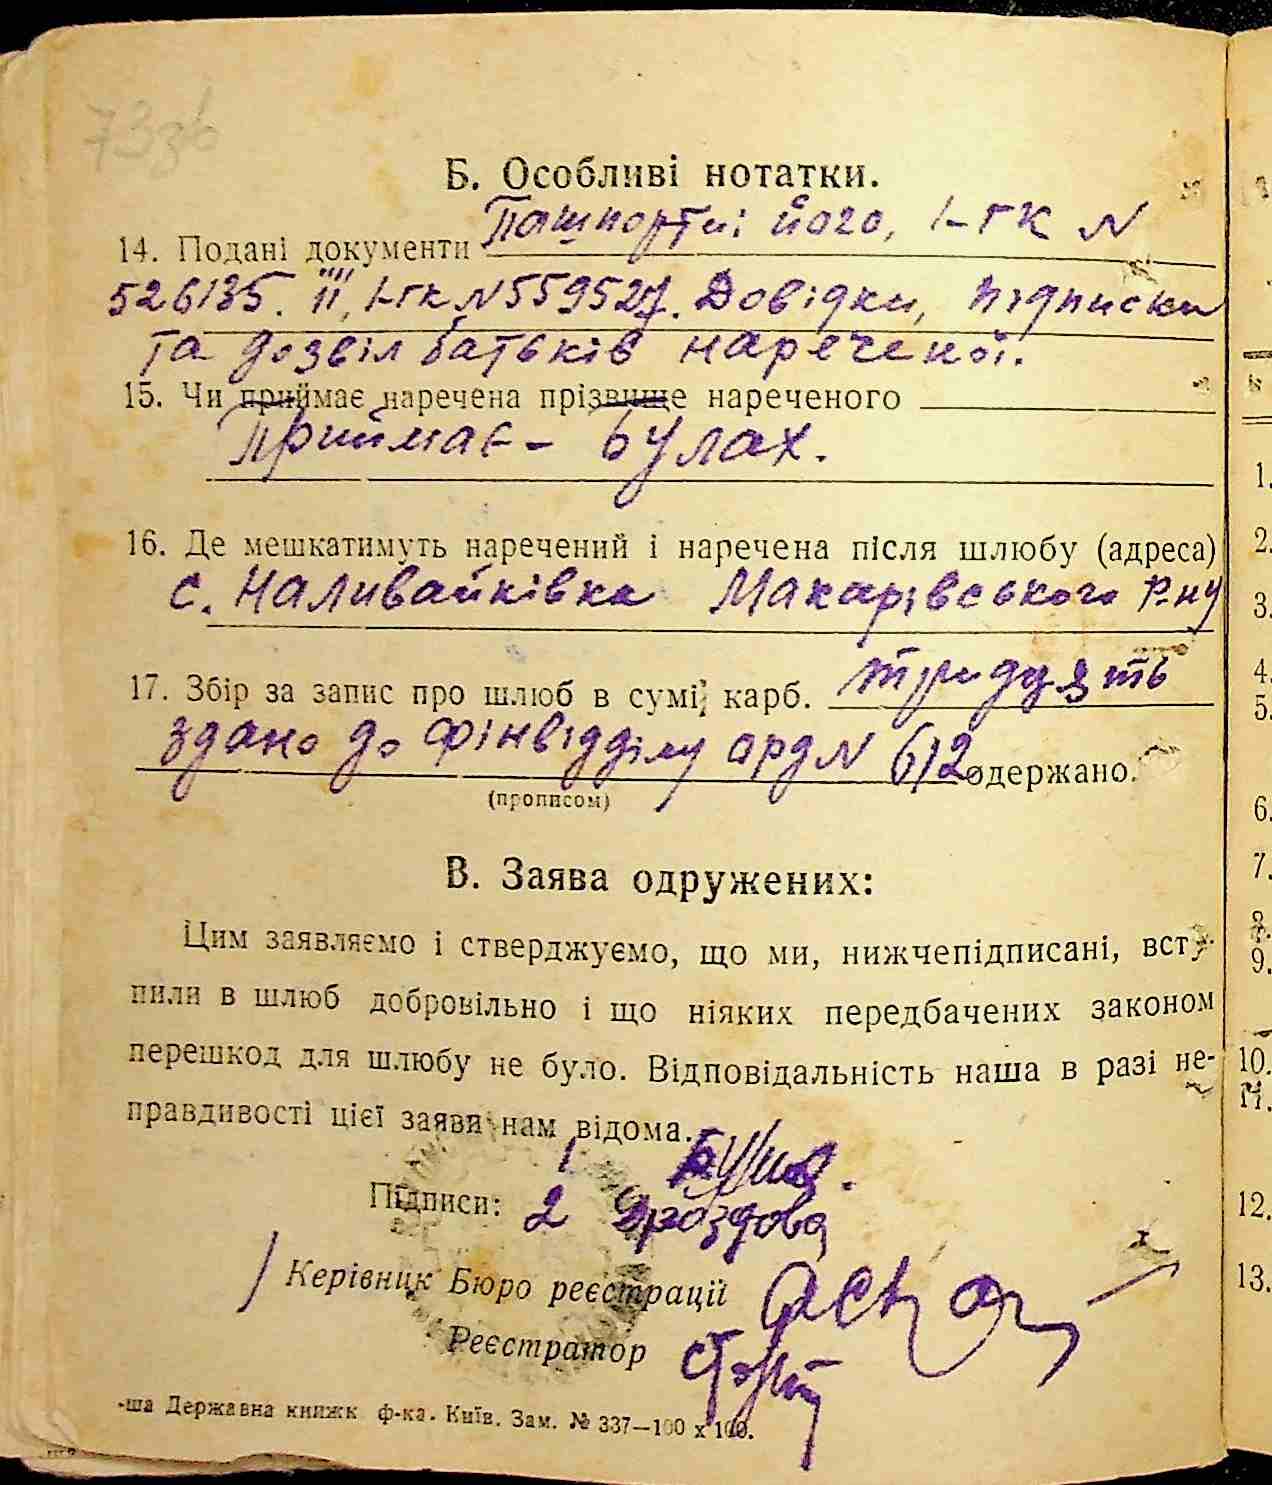 73зв
Б. Особливі нотатки.
14. Подані документи Пашпорти: його, 1-ГК N
526135. її, 1-ГК N 559527. Довідки, підписки
та дозвіл батьків нареченої.
15. Чи приймає наречена прізвище нареченого
Приймає – Булах.
16. Де мешкатимуть наречений і наречена після шлюбу (адреса)
с. Наливайківка Макарівського р-ну
17. Збір за запис про шлюб в сумі, карб. тридцять
здано до фінвідділу орд N 612 одержано.
(прописом)
В. Заява одружених:
Цим заявляємо і стверджуємо, що ми, нижчепідписані, всту-
пили в шлюб добровільно і що ніяких передбачених законом
перешкод для шлюбу не було. Відповідальність наша в разі не-
правдивості цієї заяви нам відома.
1
Підписи: 2 Дроздова
Керівник Бюро реєстрації
Реєстратор
-ша Державна книжк. ф-ка. Київ. Зам. № 337—100 х 100.
1.
2.
3.
4.
5.
6.
7.
8.
9.
10.
11.
12.
13.